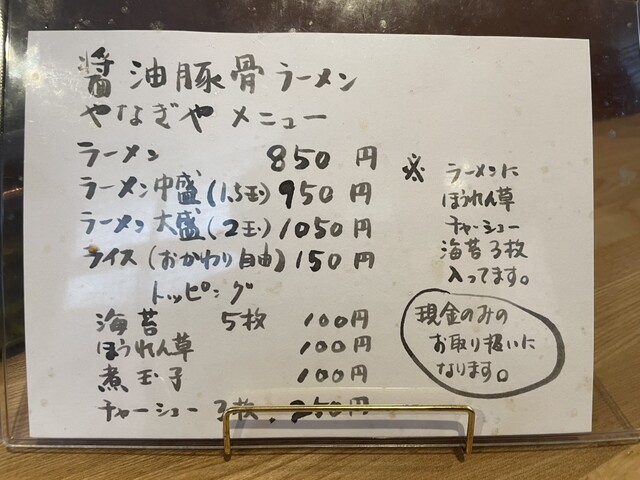 醤油豚骨ラーメン
やなぎやメニュー
ラーメン 850円
ラーメン中盛(1.5玉) 950円
ラーメン大盛(2玉) 1050円
ライス(おかわり自由) 150円
トッピング
海苔 5枚 100円
ほうれん草 100円
煮玉子 100円
チャーシュー 3枚 250円
※ ラーメンに
ほうれん草
チャーシュー
海苔3枚
入ってます。
現金のみの
お取り扱いに
なります。